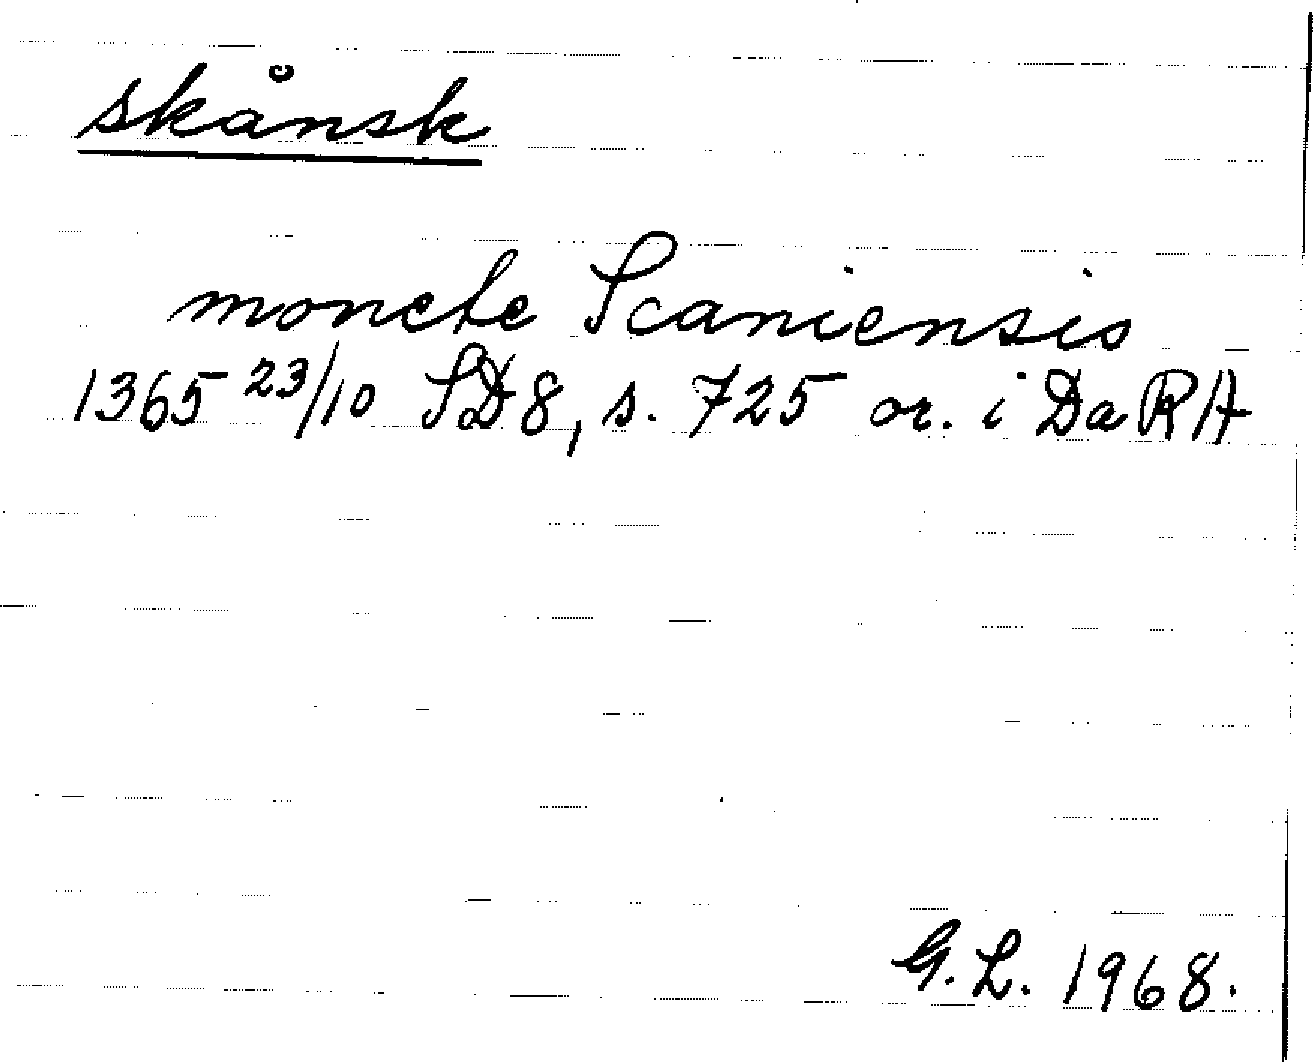 skånsk
monete Scaniensis
1365 23/10 SD8, s. 725 or. i DaRA
G.L. 1968.